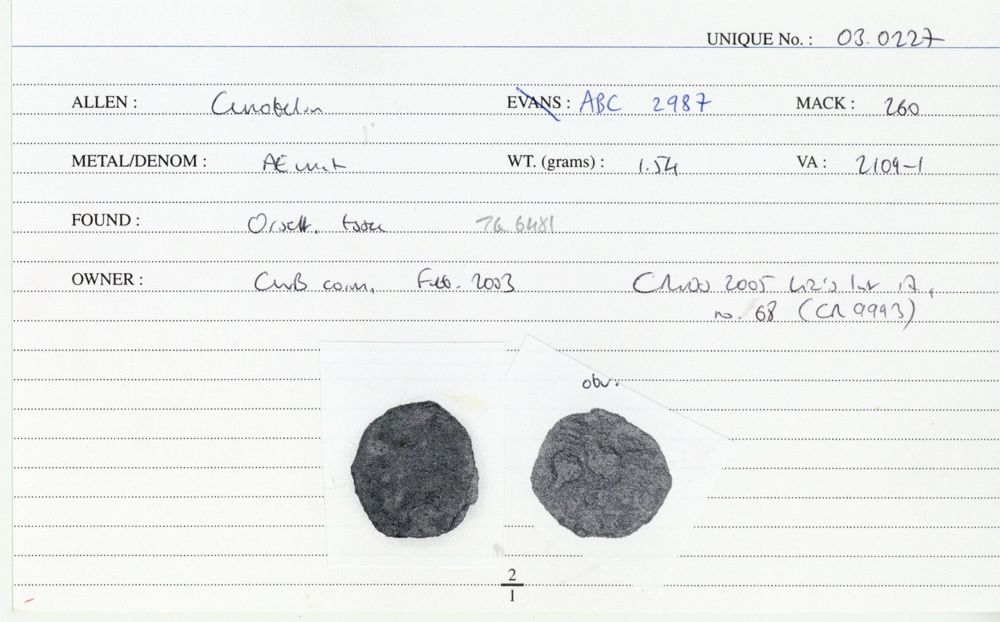 UNIQUE No.: 03.0227
ALLEN: Cunobelin EVANS: ABC 2987 MACK: 260
METAL/DENOM: AE unit WT. (grams): 1.54 VA: 2109-1
FOUND: Orsett, Essex TQ 6481
OWNER: CNB coins, Feb. 2003 2005
no. 68 (CR 9993)
obv.
2
1